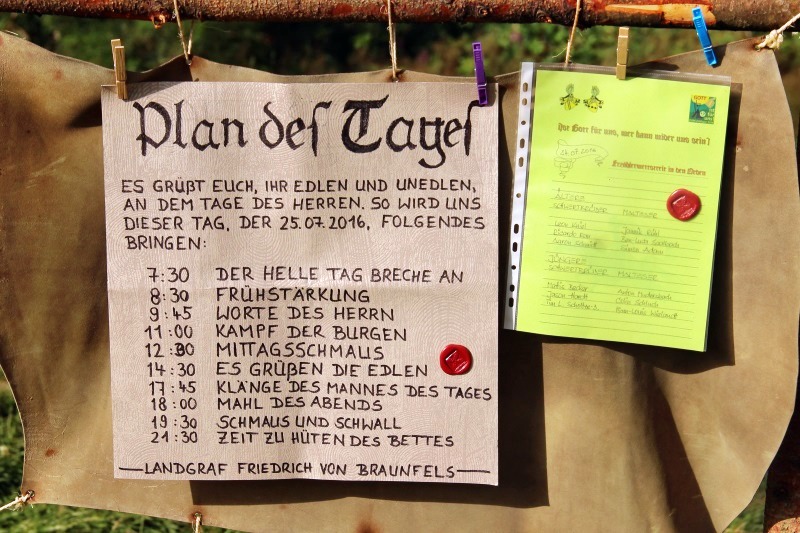 Plan des Tages
ES GRÜßT EUCH, IHR EDLEN UND UNEDLEN,
AN DEM TAGE DES HERREN. SO WIRD UNS
DIESER TAG, DER 25.07.2016, FOLGENDES
BRINGEN:
7:30 DER HELLE TAG BRECHE AN
8:30 FRÜHSTÄRKUNG
9:45 WORTE DES HERRN
11:00 KAMPF DER BURGEN
12:30 MITTAGSSCHMAUS
14:30 ES GRÜßEN DIE EDLEN
17:45 KLÄNGE DES MANNES DES TAGES
18:00 MAHL DES ABENDS
19:30 SCHMAUS UND SCHWALL
21:30 ZEIT ZU HÜTEN DES BETTES
LANDGRAF FRIEDRICH VON BRAUNFELS
Gott für uns, wer kann wider uns sein?
24.07.2016
in den
ÄLTERE
SCHWERTBRÜDER MALTESER
JÜNGERE
SCHWERTBRÜDER MALTESER